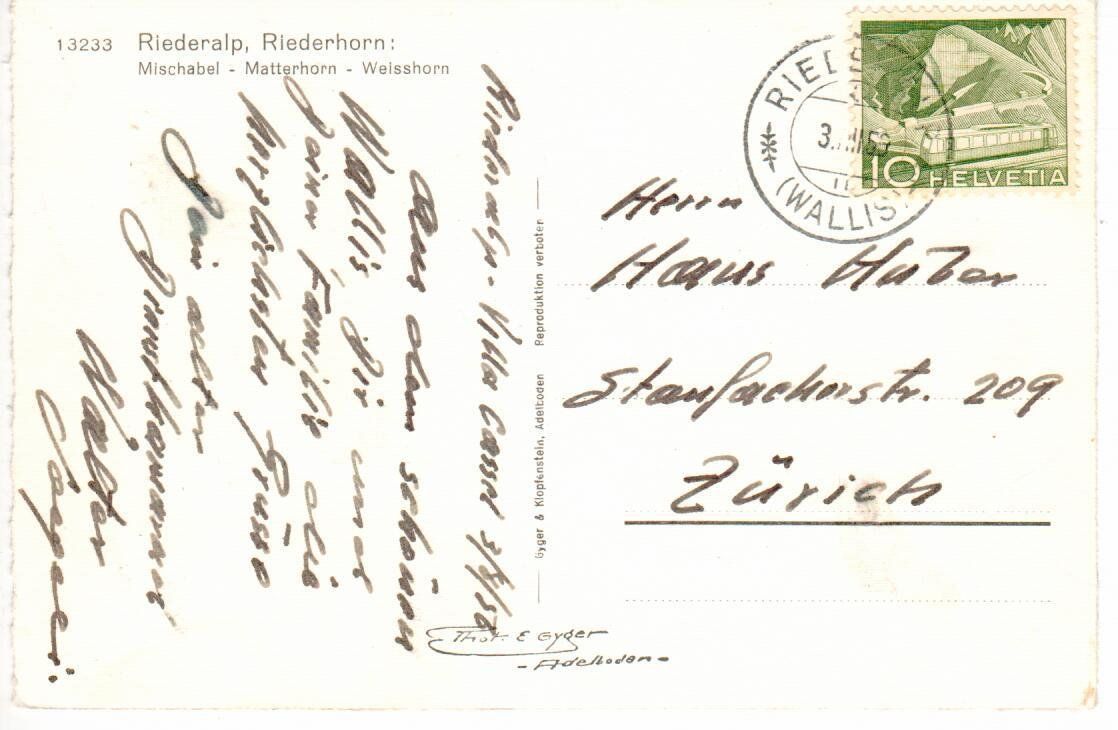 13233 Riederalp, Riederhorn:
Mischabel - Matterhorn - Weisshorn
Riederalp - Villa Cassel 3/8/50
Aus dem schönen
Wallis, Dir und
Deiner Familie die
herzlichsten Grüsse
Dein alter
Dienstkamerad
Walter
Reproduktion verboten
Gyger & Klopfenstein, Adelboden
Phot. E Gyger
- Adelboden -
RIED
(WALLIS)
10 HELVETIA
Herrn
Hans Huber
Stauffacherstr. 209
Zürich